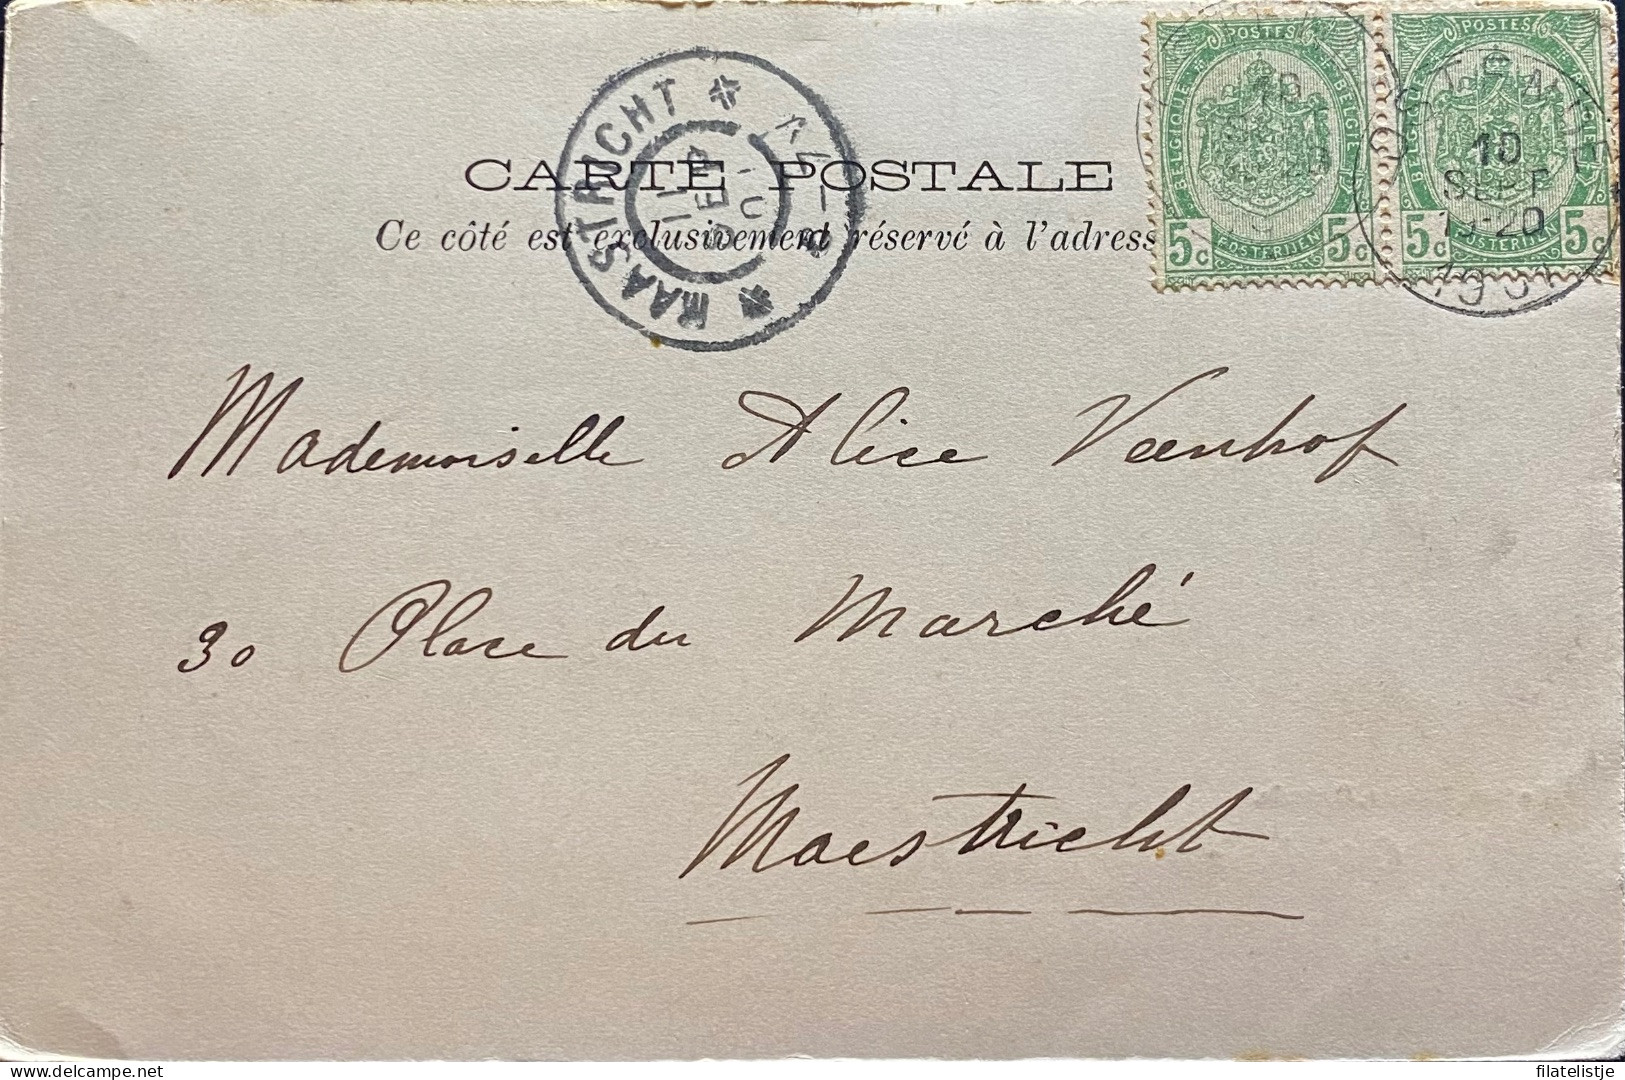 CARTE POSTALE
Ce côté est exclusivement réservé à l'adress
MAASTRICHT
11 SEP
POSTES
BELGIQUE BELGIE
5c POSTERIJEN 5c
POSTES
BELGIQUE
5c POSTERIJEN 5c
OSTENDE
10
SEPT
19-20
1901
Mademoiselle Alice Veenhof
30 Place du Marché
Maestricht
filatelistje